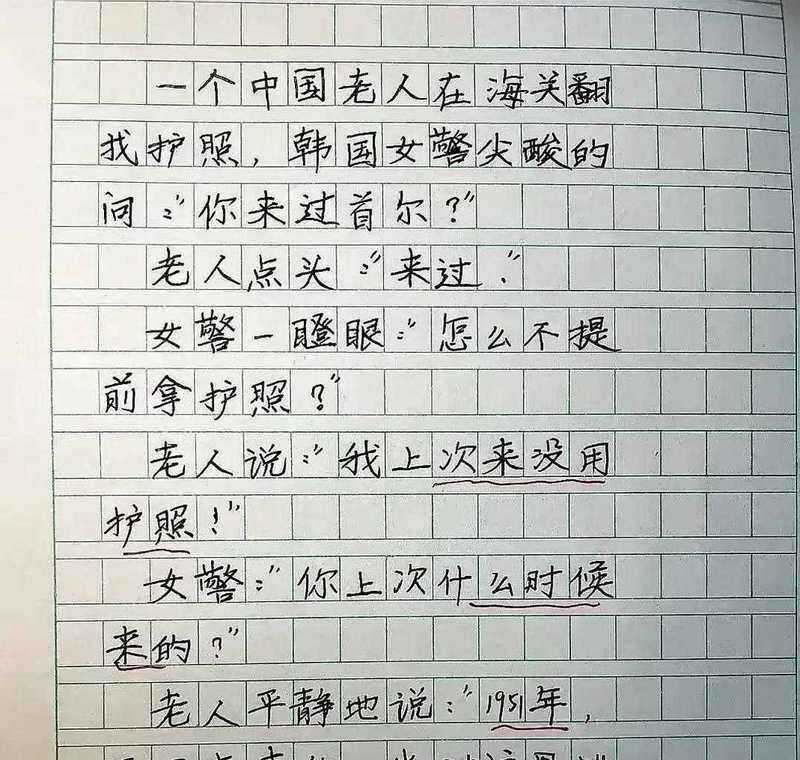 一个中国老人在海关翻
找护照，韩国女警尖酸的
问：“你来过首尔？”
老人点头：“来过．”
女警一瞪眼：“怎么不提
前拿护照？”
老人说：“我上次来没用
护照！”
女警：“你上次什么时候
来的？”
老人平静地说：“1951年，